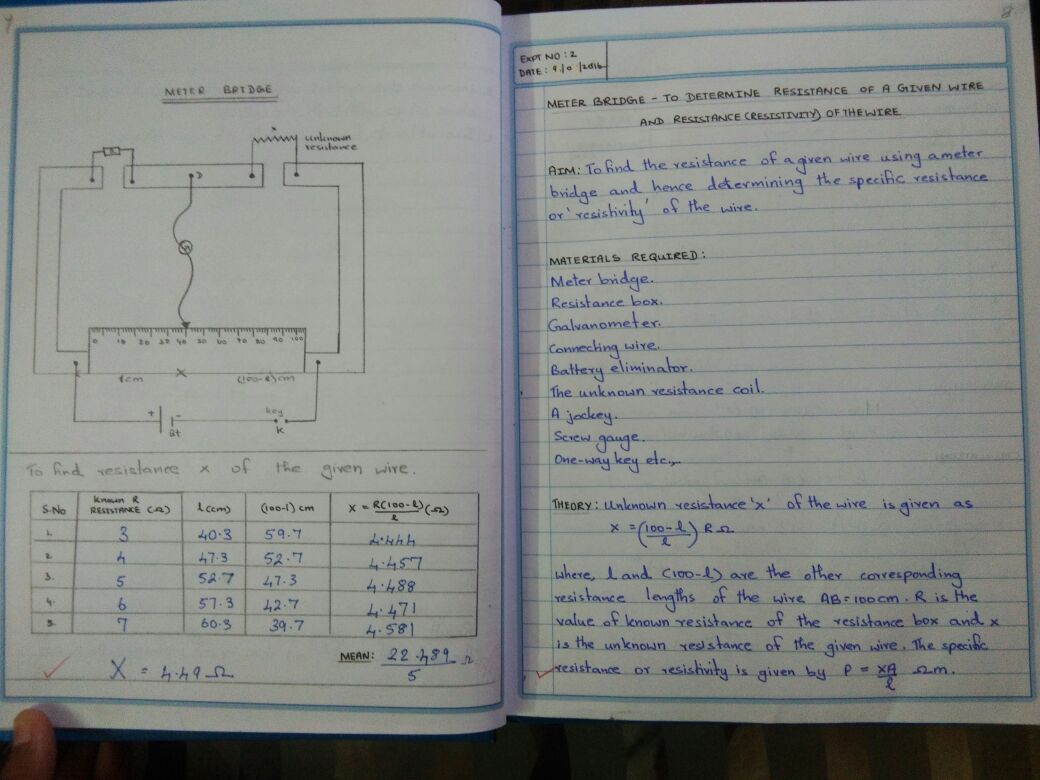 7
METER BRIDGE
R
X
unknown
resistance
D
G
0 10 20 30 40 50 60 70 80 90 100
lcm
(100-l)cm
+
-
Bt
key
K
To find resistance x of the given wire.
S.No
known R RESISTANCE (Ω)
l(cm)
(100-l) cm
X = R(100-l)/l (Ω)
1. 3 40.3 59.7 4.444
2. 4 47.3 52.7 4.457
3. 5 52.7 47.3 4.488
4. 6 57.3 42.7 4.471
5. 7 60.3 39.7 4.581
MEAN: 22.489/5 Ω
X = 4.49 Ω
8
EXPT NO : 2
DATE :
METER BRIDGE - TO DETERMINE RESISTANCE OF A GIVEN WIRE
AND RESISTANCE (RESISTIVITY) OF THE WIRE
AIM: To find the resistance of a given wire using a meter
bridge and hence determining the specific resistance
or 'resistivity' of the wire.
MATERIALS REQUIRED:
Meter bridge.
Resistance box.
Galvanometer.
Connecting wire.
Battery eliminator.
The unknown resistance coil.
A jockey.
Screw gauge.
One-way key etc.,..
THEORY: Unknown resistance 'x' of the wire is given as
x = (100-l/l) R Ω
where, l and (100-l) are the other corresponding
resistance lengths of the wire AB = 100cm. R is the
value of known resistance of the resistance box and x
is the unknown resistance of the given wire. The specific
resistance or resistivity is given by ρ = xA/l Ωm.